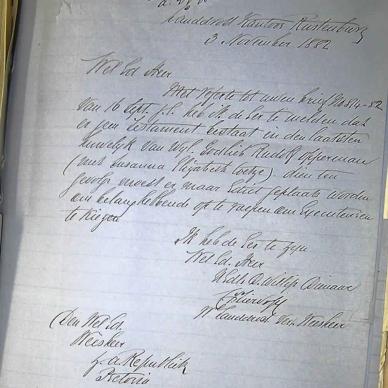 Landdrost Kantoor Rustenburg
3 November 1882
Wel Ed. Heer
Met referte tot uwen brief No 814-82
van 16 Sept. j.l. heb ik de Eer te melden dat
er geen testament bestaat in den laatsten
huwelijk van Wyl. Godlieb Rudolf Opperman
(met Susanna Elizabeth) dien ten
gevolge moest er maar Edict geplaatst worden
om belanghebbende op te roepen om Executeuren
te krijgen
Ik heb de Eer te zijn
Wel Ed. Heer
UEdls. D. Willige Dienaar
Landdrost
Den Wel Ed.
Weesheer
Z. A. Republiek
Pretoria